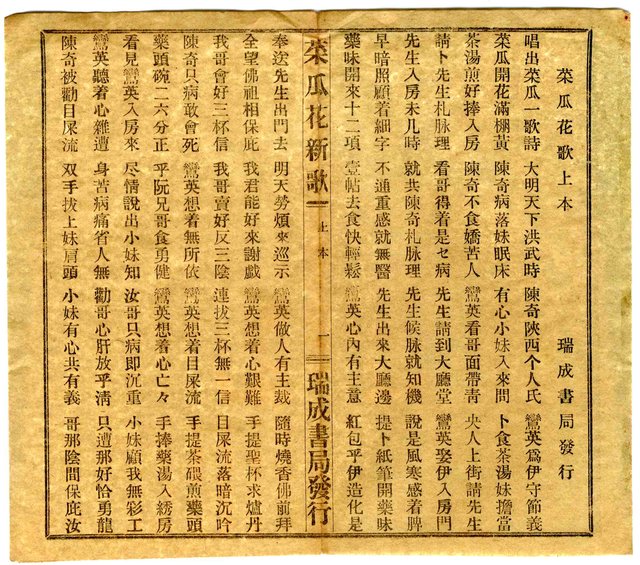 菜瓜花歌上本 瑞成書局發行
唱出菜瓜一歌詩 大明天下洪武時 陳奇陝西个人氏 鸞英爲伊守節義
菜瓜開花滿棚黃 陳奇病落妹眠床 有心小妹入來問 卜食茶湯妹擔當
茶湯煎好捧入房 陳奇不食嬌苦人 鸞英看哥面帶青 央人上街請先生
請卜先生札脉理 看哥得着是セ病 先生請到大廳堂 鸞英娶伊入房門
先生入房未几時 就共陳奇札脉理 先生候脉就知機 說是風寒感着脾
早暗照顧着細字 不通重感就無醫 先生出來大廳邊 提卜紙筆開藥味
藥味開來十二項 壹帖去食快輕鬆 鸞英心內有主意 紅包乎伊造化是
菜瓜花新歌 上本 一 瑞成書局發行
奉送先生出門去 明天勞煩來巡示 鸞英做人有主裁 隨時燒香佛前拜
全望佛祖相保庇 我君能好來謝戲 鸞英想着心艱難 手提聖杯求爐丹
我哥會好三杯信 我哥賣好反三陰 連拔三杯無一信 目屎流落暗沉吟
陳奇只病敢會死 鸞英想着無所依 鸞英想着目屎流 手提茶碨煎藥頭
藥頭碗二六分正 乎阮兄哥食勇健 鸞英想着心亡々 手捧藥湯入綉房
看見鸞英入房來 尽情說出小妹知 汝哥只病即沉重 小妹顧我無彩工
鸞英聽着心雜遭 身苦病痛省人無 勸哥心肝放乎淸 只遭那好恰勇龍
陳奇被勸目屎流 双手拔上妹肩頭 小妹有心共有義 哥那陰間保庇汝